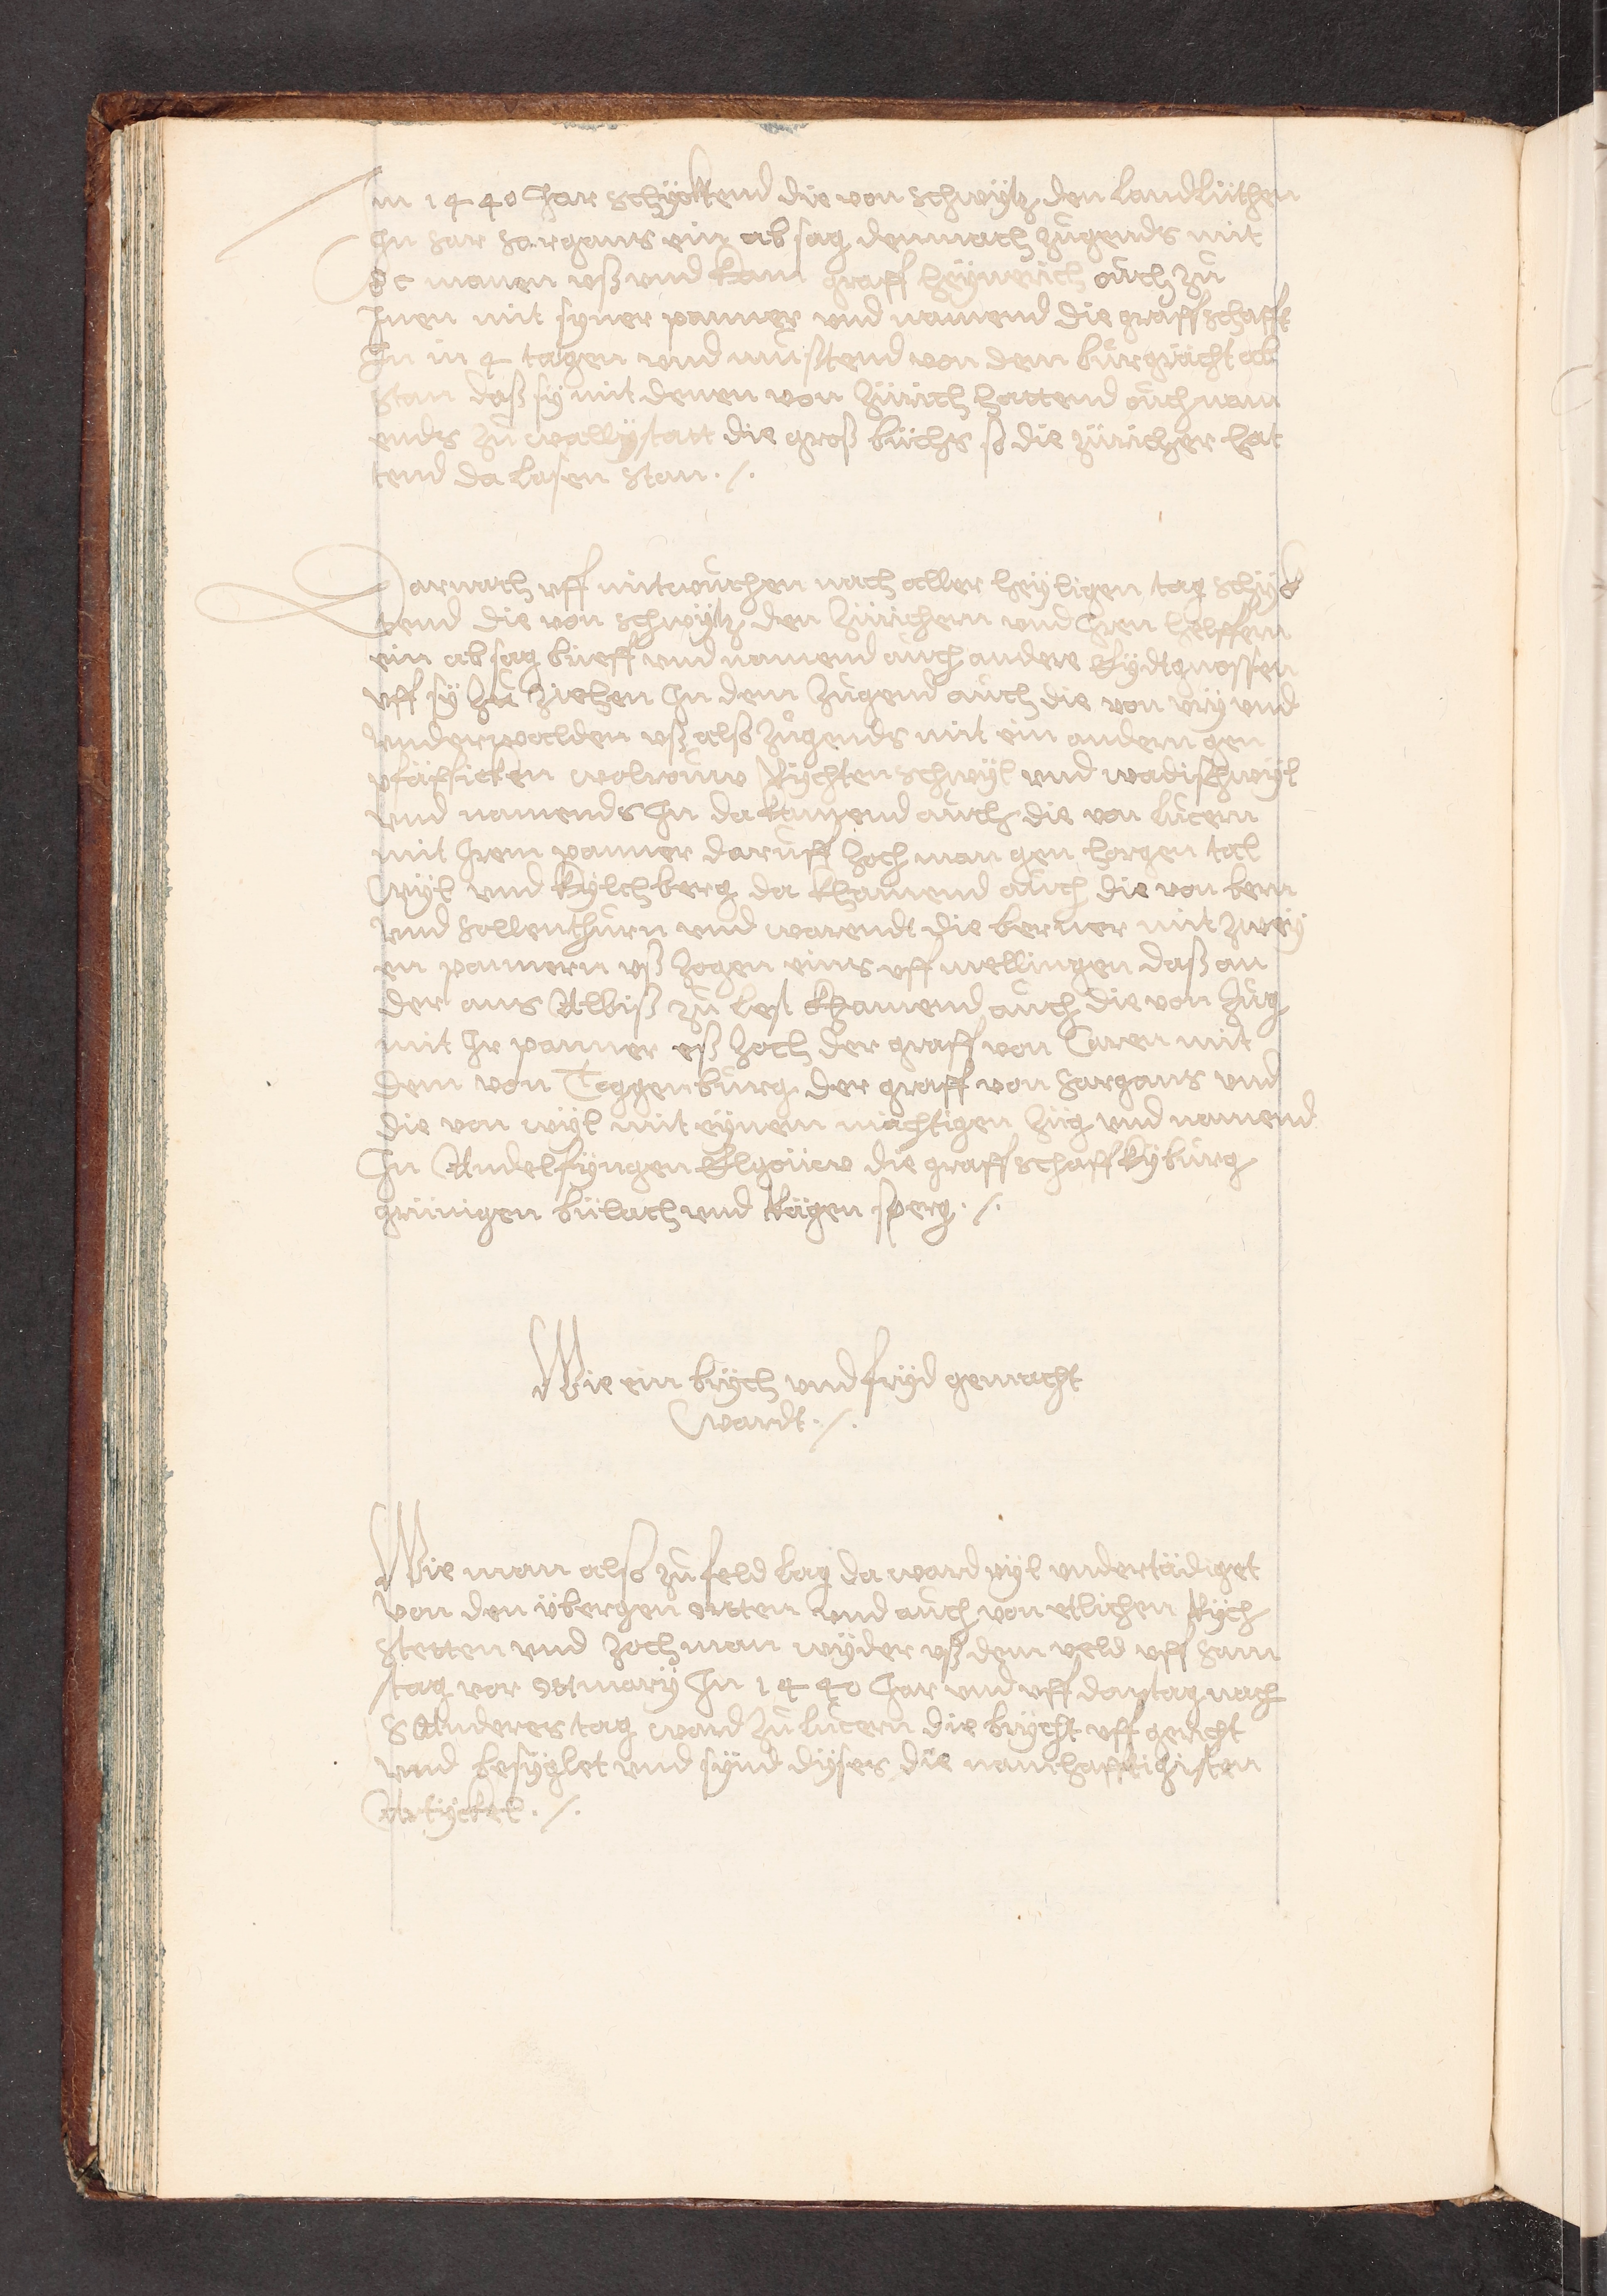 Im 1440 Jar schÿcktend die von schwÿtz den landlüthen
In sar sargans ein absag demnach zugends mit
dc manen uß vnd kam graff heÿnrich ouch zů
Inen mit sÿner panner vnd namend die graffschafft
In in 4 tagen vnd můstend von dem bůrgrächt ab
stan daß sÿ mit denen von Zürich hattend ouch nam
ends zů wallÿstatt die groß büchs so die züricher hat
tend da lasen stan ./.
Darnach vff mitwuchen nach aller heÿligen tag schÿck
tend die von schwÿtz den Zürichern vnd Iren helffern
ein absag brieff vnd namend ouch andere Eÿdtgnossen
vff sÿ zů ziehen In dem zugend ouch die von vrÿ vnd
vnderwalden uß also zugends mit ein andern gen
pfäfficken wolrouw Rÿchtenschwÿl vnd wadischwÿl
vnd namends In da kamend ouch die von lucern
mit Irem panner daruff zoch man gen horgen tal
wÿl vnd kÿlchberg da khamend ouch die von bern
vnd sollenthurn vnd warendt die berner mit zweÿ
en pannern uß zogen eins vff mellingen daß an
der ans Albiß zů lest khamend ouch die von Zug
mit Ir panner eß zoch der graff von Raren mit
dem von Toggenburg der graff von sargans vnd
die von wÿl mit eÿnem mächtigen züg vnd namend
In Andelfÿngen Elgöüw die graffschaff kÿburg
grünigen bülach vnd Rägensperg ./.
Wie ein brÿch vnd frÿd gemacht
wardt ./.
Wie man also zů feld lag da ward vÿl vndertädiget
von den übergen ortten vnd ouch von etlichen Rÿch
stetten vnd zoch man wÿder uß dem veld vff sam
stag vor otmarÿ In 1440 Jar vnd vff donstag nach
S Anderes tag ward zů lucern die brÿcht vff gericht
vnd besÿglet vnd sÿnd dÿses die namhafftigisten
Artÿckel ./.